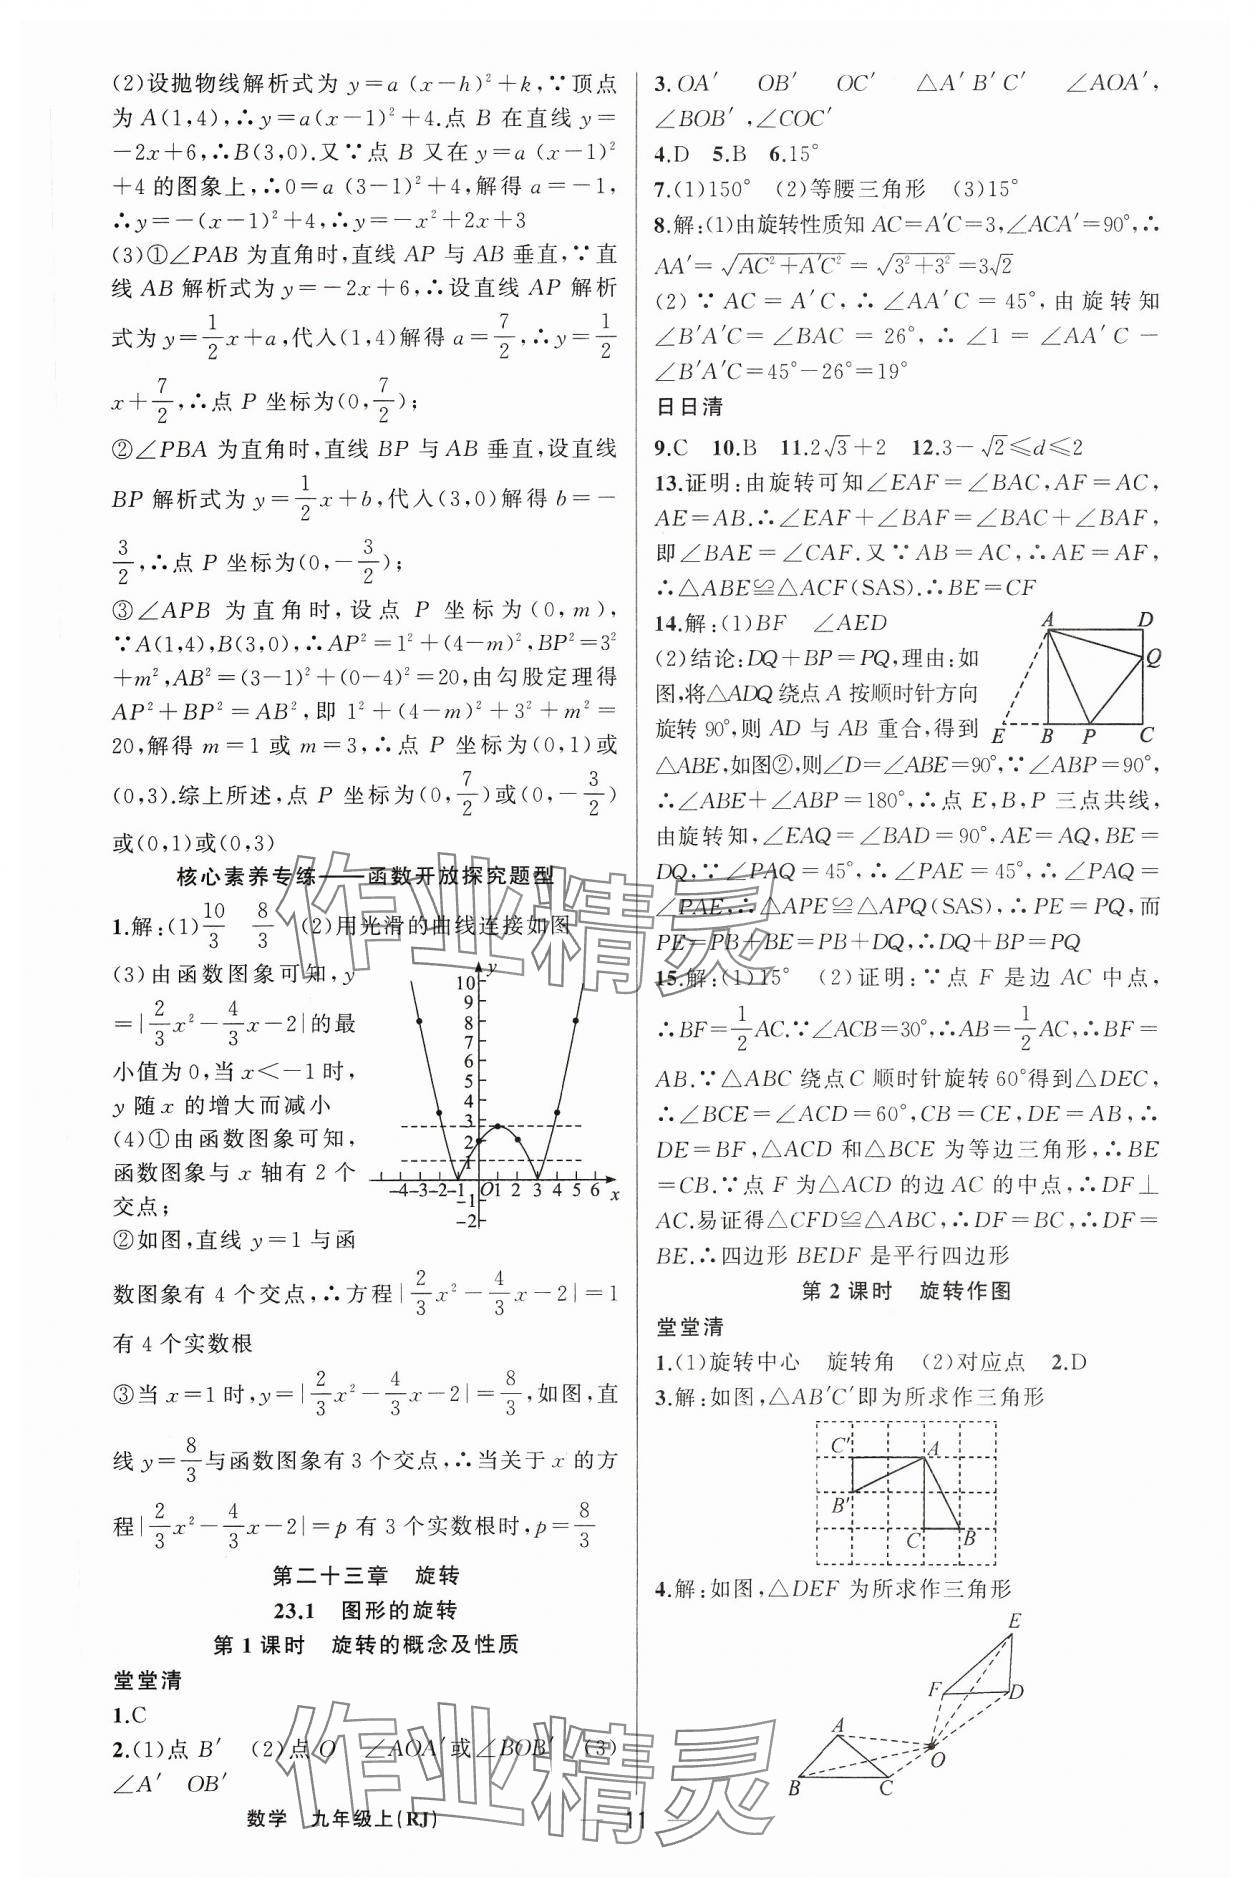 (2)设抛物线解析式为 y=a (x-h)²+k,∵顶点
为 A(1,4),∴y=a(x-1)²+4.点 B 在直线 y=
-2x+6,∴B(3,0).又∵点 B 又在 y=a (x-1)²
+4 的图象上,∴0=a (3-1)²+4,解得 a=-1,
∴y=-(x-1)²+4,∴y=-x²+2x+3
(3)①∠PAB 为直角时,直线 AP 与 AB 垂直,∵直
线 AB 解析式为 y=-2x+6,∴设直线 AP 解析
式为 y=1/2x+a,代入(1,4)解得 a=7/2,∴y=1/2
x+7/2,∴点 P 坐标为(0,7/2);
②∠PBA 为直角时,直线 BP 与 AB 垂直,设直线
BP 解析式为 y=1/2x+b,代入(3,0)解得 b=-
3/2,∴点 P 坐标为(0,-3/2);
③∠APB 为直角时,设点 P 坐标为(0,m),
∵A(1,4),B(3,0),∴AP²=1²+(4-m)²,BP²=3²
+m²,AB²=(3-1)²+(0-4)²=20,由勾股定理得
AP²+BP²=AB²,即 1²+(4-m)²+3²+m²=
20,解得 m=1 或 m=3,∴点 P 坐标为(0,1)或
(0,3).综上所述,点 P 坐标为(0,7/2)或(0,-3/2)
或(0,1)或(0,3)
核心素养专练——函数开放探究题型
1.解:(1)10/3 8/3 (2)用光滑的曲线连接如图
(3)由函数图象可知,y
=|2/3x²-4/3x-2|的最
小值为 0,当 x<-1 时,
y 随 x 的增大而减小
(4)①由函数图象可知,
函数图象与 x 轴有 2 个
交点;
②如图,直线 y=1 与函
y
10
9
8
7
6
5
4
3
2
1
-4-3-2-1 O1 2 3 4 5 6 x
-1
-2
数图象有 4 个交点,∴方程|2/3x²-4/3x-2|=1
有 4 个实数根
③当 x=1 时,y=|2/3x²-4/3x-2|=8/3,如图,直
线 y=8/3与函数图象有 3 个交点,∴当关于 x 的方
程|2/3x²-4/3x-2|=p 有 3 个实数根时,p=8/3
第二十三章 旋转
23.1 图形的旋转
第 1 课时 旋转的概念及性质
堂堂清
1.C
2.(1)点 B′ (2)点 O ∠AOA′或∠BOB′ (3)
∠A′ OB′
3.OA′ OB′ OC′ △A′B′C′ ∠AOA′,
∠BOB′,∠COC′
4.D 5.B 6.15°
7.(1)150° (2)等腰三角形 (3)15°
8.解:(1)由旋转性质知 AC=A′C=3,∠ACA′=90°,∴
AA′=√(AC²+A′C²)=√(3²+3²)=3√2
(2)∵AC=A′C,∴∠AA′C=45°,由旋转知
∠B′A′C=∠BAC=26°,∴∠1=∠AA′C-
∠B′A′C=45°-26°=19°
日日清
9.C 10.B 11.2√3+2 12.3-√2≤d≤2
13.证明:由旋转可知∠EAF=∠BAC,AF=AC,
AE=AB.∴∠EAF+∠BAF=∠BAC+∠BAF,
即∠BAE=∠CAF.又∵AB=AC,∴AE=AF,
∴△ABE≌△ACF(SAS).∴BE=CF
14.解:(1)BF ∠AED
(2)结论:DQ+BP=PQ,理由:如
图,将△ADQ 绕点 A 按顺时针方向
旋转 90°,则 AD 与 AB 重合,得到
A D
Q
E B P C
△ABE,如图②,则∠D=∠ABE=90°,∵∠ABP=90°,
∴∠ABE+∠ABP=180°,∴点 E,B,P 三点共线,
由旋转知,∠EAQ=∠BAD=90°,AE=AQ,BE=
DQ,∵∠PAQ=45°,∴∠PAE=45°,∴∠PAQ=
∠PAE,∴△APE≌△APQ(SAS),∴PE=PQ,而
PE=PB+BE=PB+DQ,∴DQ+BP=PQ
15.解:(1)15° (2)证明:∵点 F 是边 AC 中点,
∴BF=1/2AC.∵∠ACB=30°,∴AB=1/2AC,∴BF=
AB.∵△ABC 绕点 C 顺时针旋转 60°得到△DEC,
∴∠BCE=∠ACD=60°,CB=CE,DE=AB,∴
DE=BF,△ACD 和△BCE 为等边三角形,∴BE
=CB.∵点 F 为△ACD 的边 AC 的中点,∴DF⊥
AC.易证得△CFD≌△ABC,∴DF=BC,∴DF=
BE.∴四边形 BEDF 是平行四边形
第 2 课时 旋转作图
堂堂清
1.(1)旋转中心 旋转角 (2)对应点 2.D
3.解:如图,△AB′C′即为所求作三角形
C′ A
B′
C B
4.解:如图,△DEF 为所求作三角形
E
F D
A
O
B C
数学 九年级上(RJ)
11
作业精灵
作业精灵